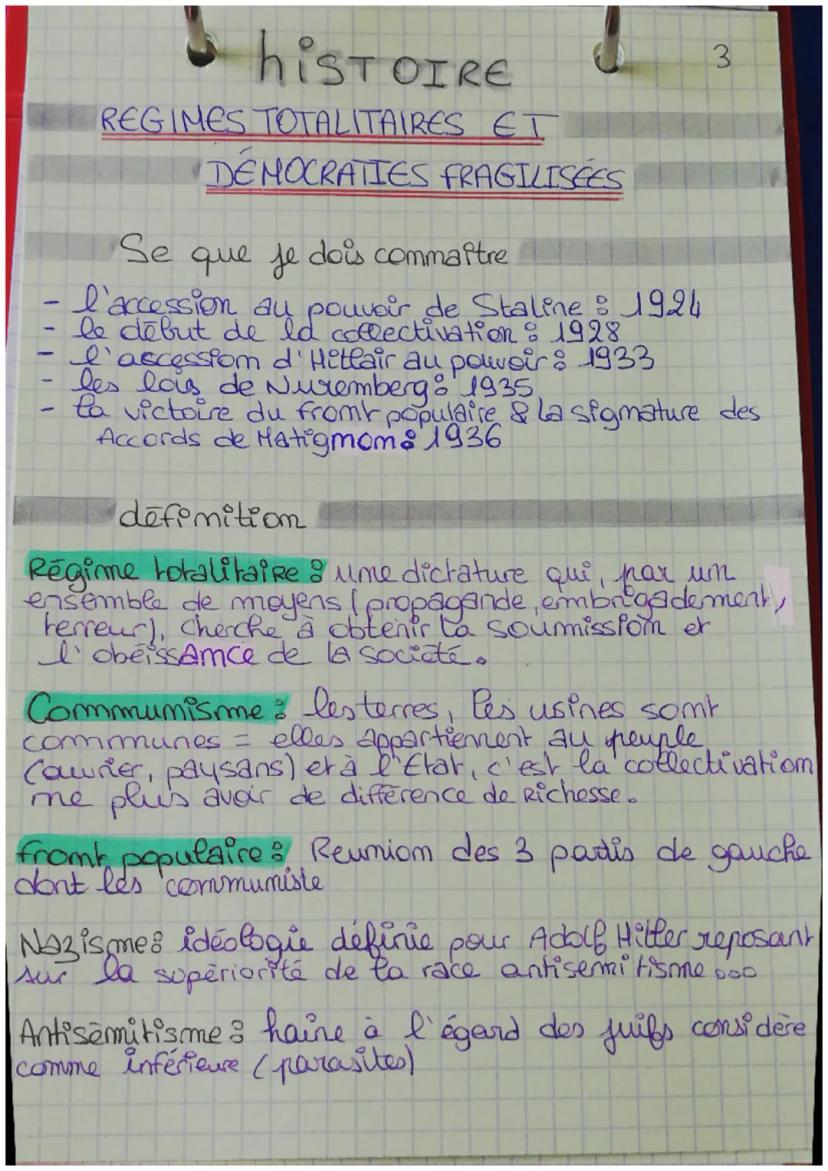 hISTOIRE
3
REGIMES TOTALITAIRES ET
DÉMOCRATIES FRAGILISÉES
Se que je dois connaître
- l'accession au pouvoir de Staline : 1924
- le début de la collectivation : 1928
- l'ascession d'Hitlair au pouvoir : 1933
- les lois de Nuremberg : 1935
- la victoire du front populaire & la signature des
Accords de Matignon : 1936
définition
Régime totalitaire : une dictature qui, par un
ensemble de moyens (propagande, embrigadement,
terreur), cherche à obtenir la soumission et
l'obéissance de la société.
Communisme : les terres, les usines sont
communes = elles appartiennent au peuple
(ouvrier, paysans) et à l'État, c'est la collectivation
ne plus avoir de différence de Richesse.
front populaire : Reunion des 3 partis de gauche
dont les communiste
Nazisme : idéologie définie pour Adolf Hitler reposant
sur la supériorité de la race antisemitisme ...
Antisémitisme : haine à l'égard des juifs considère
comme inférieure (parasites)